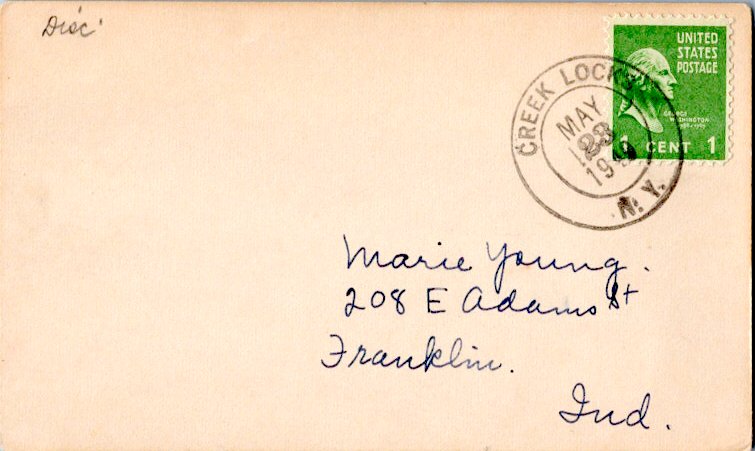 Disc.
UNITED
STATES
POSTAGE
GEORGE
WASHINGTON
1 CENT 1
CREEK LOCKS
MAY
23
N. Y.
Marie Young.
208 E Adams St
Franklin.
Ind.